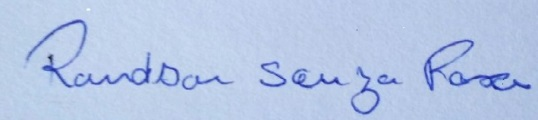 Randson Souza Rosa